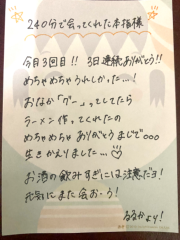 240分で会ってくれた本指様
今月3回目!! 3日連続ありがとう!!
めちゃめちゃうれしかった…!
おなか「グー」ってしてたら
ラーメン作ってくれたの
めちゃめちゃ ありがとう まじで。。。
生きかえりました…♡
お酒の飲みすぎには注意だヨ!
元気にまた会おーう!
るなかより!